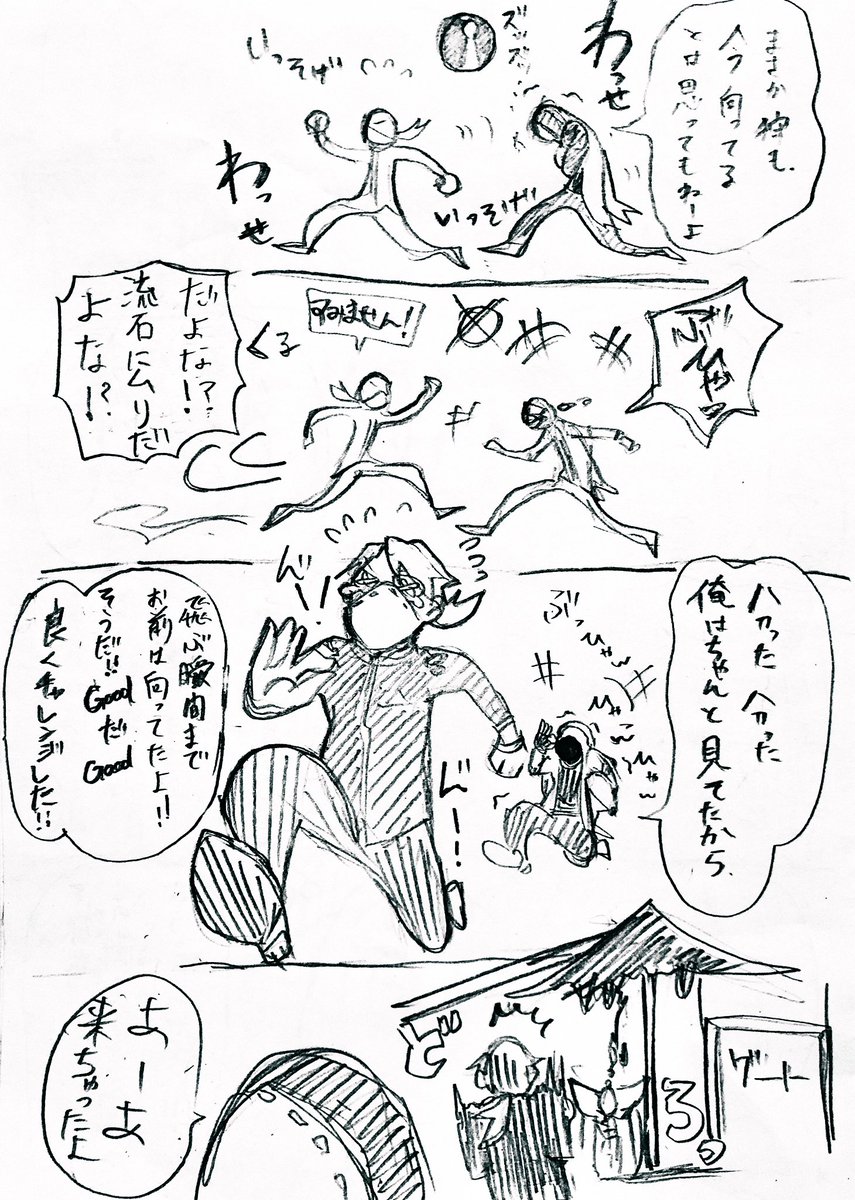 まさか狩も、
今向ってる
とは思ってもねーよ
わっせ
いっそげ
わっせ
いっそげ
ぶひゃっ
すみません!
くる
だよな!?
流石にムリだ
よな!?
分った分った
俺はちゃんと見てたから
ぶっひゃ
ひゃ
ひゃ
んー!
んー!!
飛ぶ瞬間まで
お前は向ってたよ!!
そうだ!!Goodだ Good
良くチャレンジした!!
ゲート
3
あーあ
来ちゃったよ